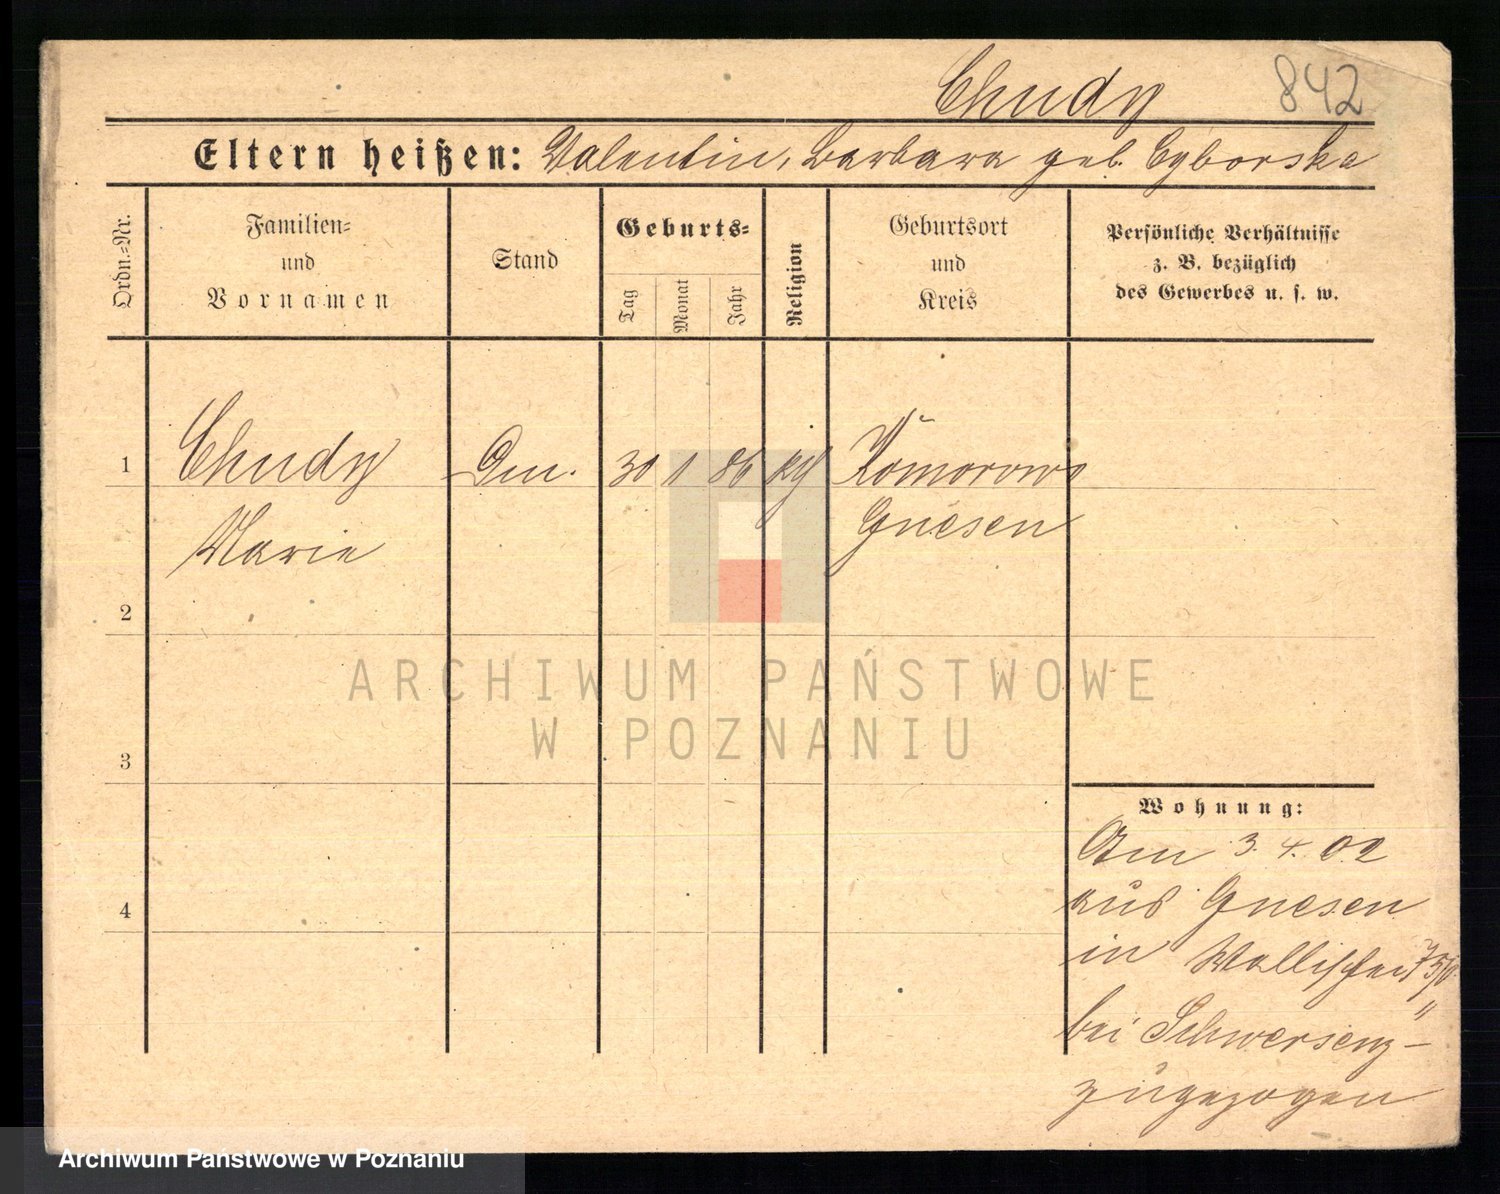 Chudy 842
Eltern heißen: Valentin, Barbara geb. Cyborska
Ordn.-Nr.
Familien-
und
Vornamen
Stand
Geburts-
Tag
Monat
Jahr
Religion
Geburtsort
und
Kreis
Persönliche Verhältnisse
z. B. bezüglich
des Gewerbes u. s. w.
1 Chudy 30 1 86 Komorowo
Marie Gnesen
2
ARCHIWUM PAŃSTWOWE
W POZNANIU
3
Wohnung:
Am 3. 4. 02
4 aus Gnesen
in Wallischei
bei Schwersenz
zugezogen
Archiwum Państwowe w Poznaniu